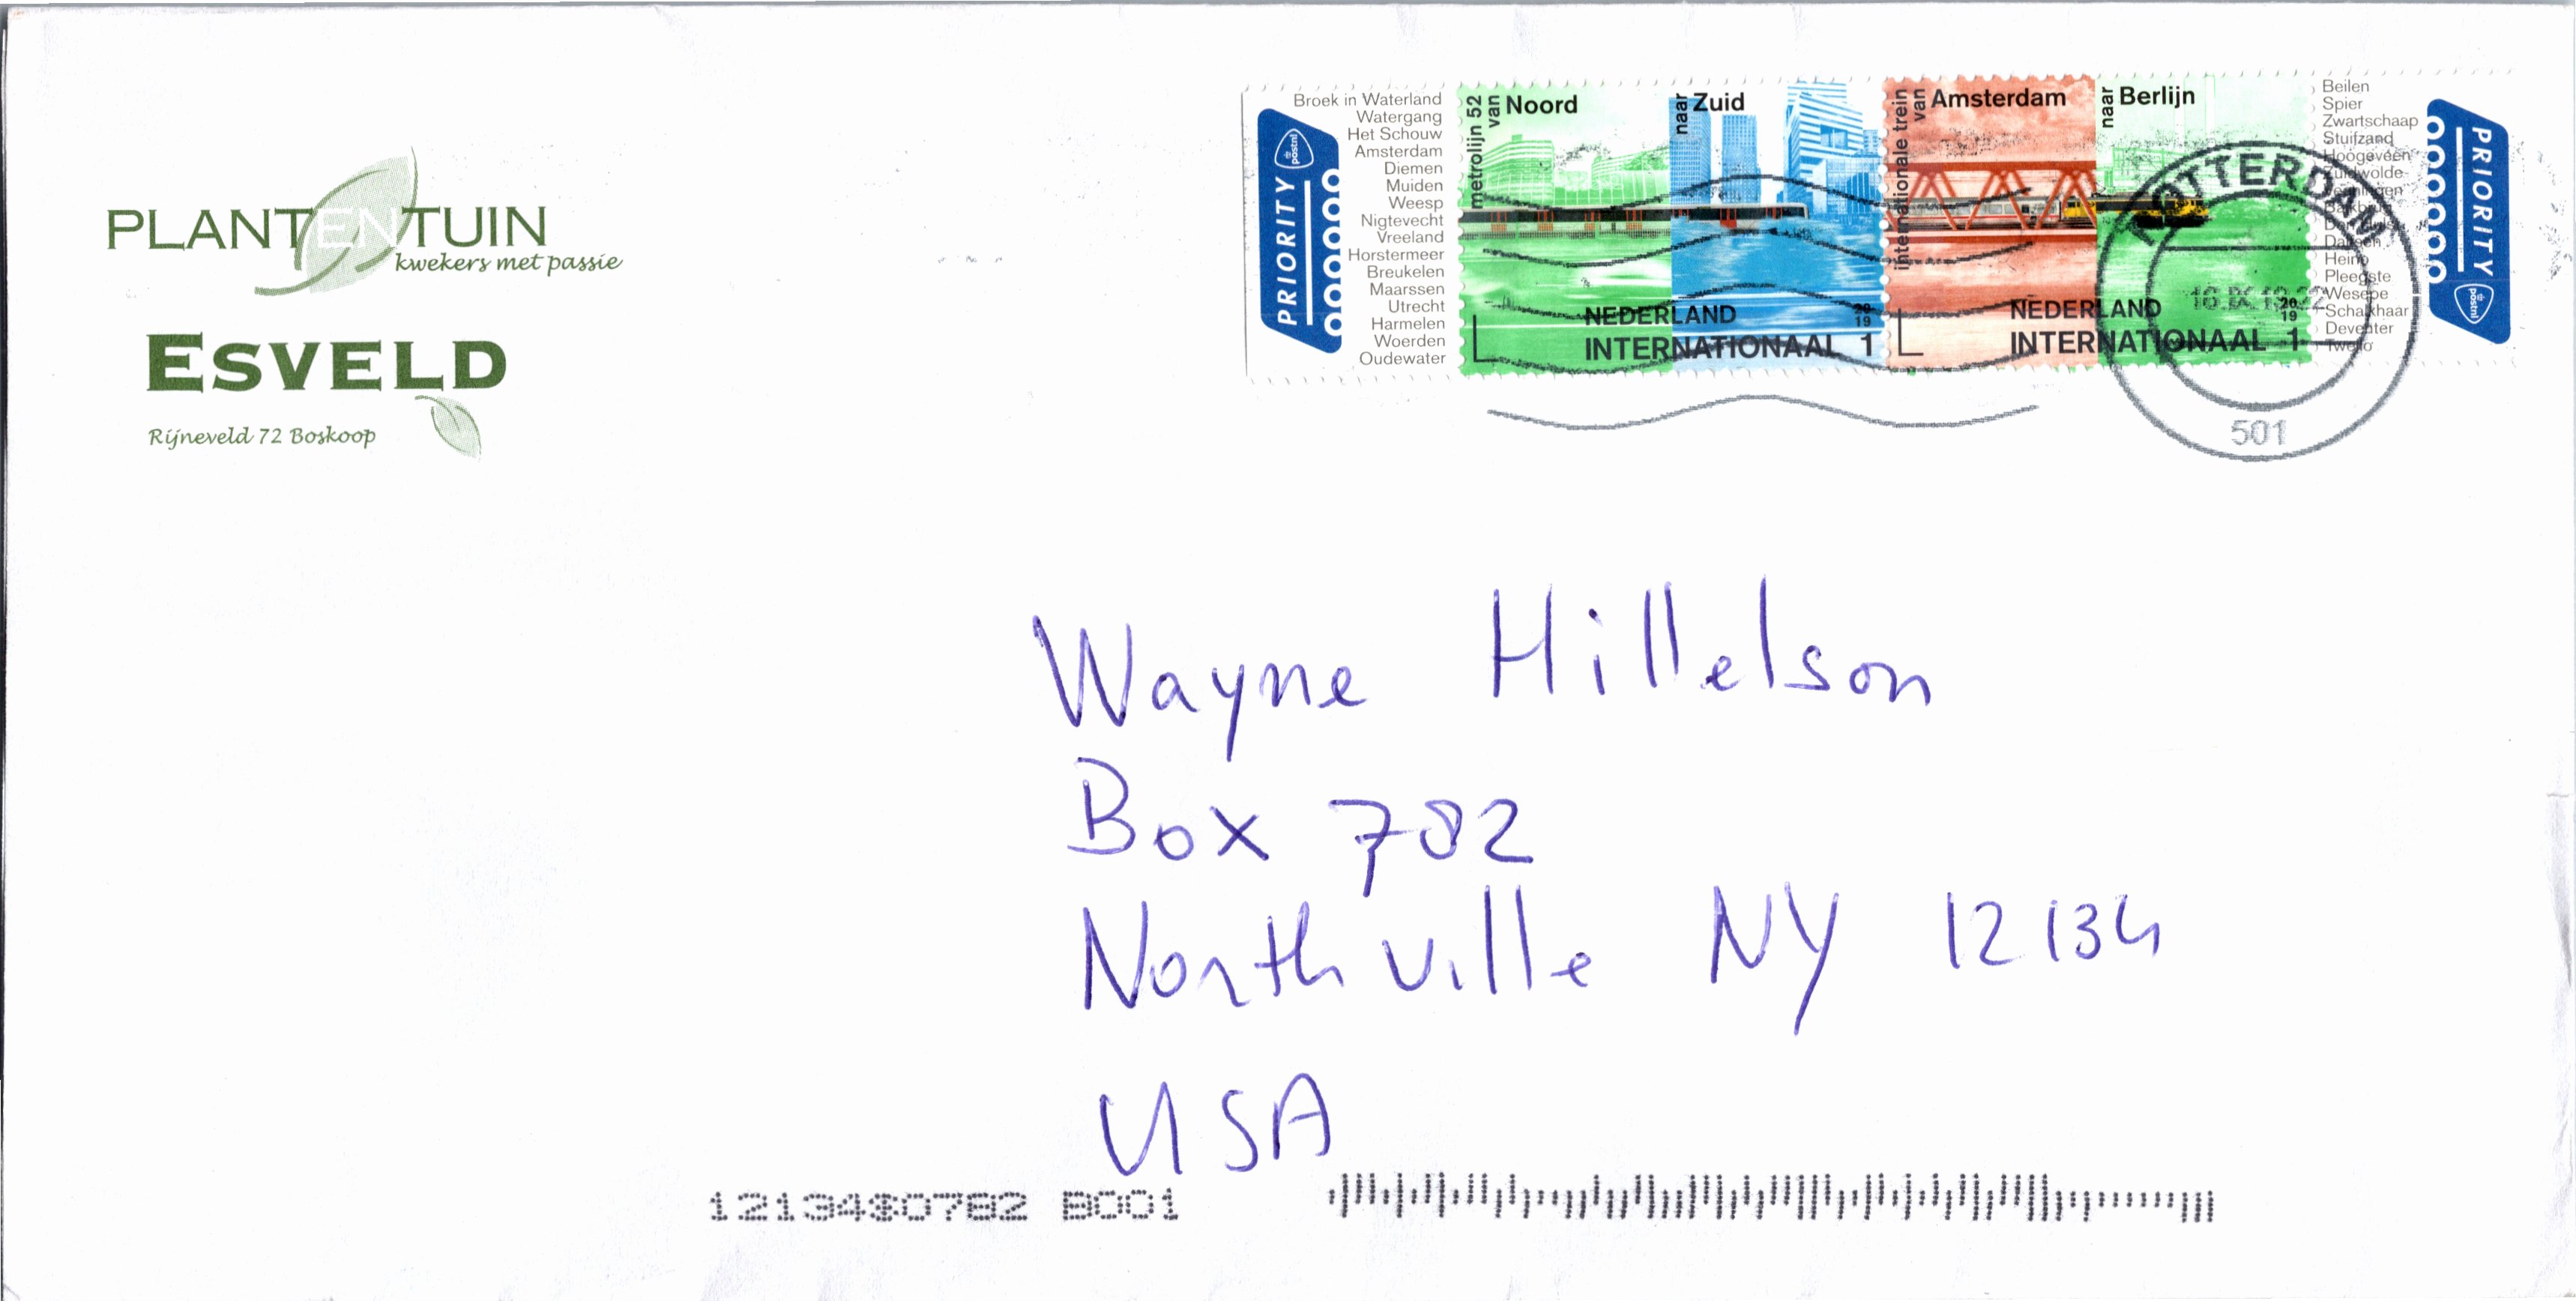 PLANTENTUIN
kwekers met passie
ESVELD
Rijneveld 72 Boskoop
PRIORITY
postnl
Broek in Waterland
Watergang
Het Schouw
Amsterdam
Diemen
Muiden
Weesp
Nigtevecht
Vreeland
Horstermeer
Breukelen
Maarssen
Utrecht
Harmelen
Woerden
Oudewater
metrolijn 52
van Noord
naar Zuid
NEDERLAND
2019
INTERNATIONAAL 1
internationale trein
van Amsterdam
naar Berlijn
NEDERLAND
2019
INTERNATIONAAL 1
Beilen
Spier
Zwartschaap
Stuifzand
Hoogeveen
Zuidwolde
Dalfsen
Heino
Pleegste
Wesepe
Schalkhaar
Deventer
Twello
PRIORITY
postnl
ROTTERDAM
501
Wayne Hillelson
Box 782
Northville NY 12134
USA
12134$0782 B001